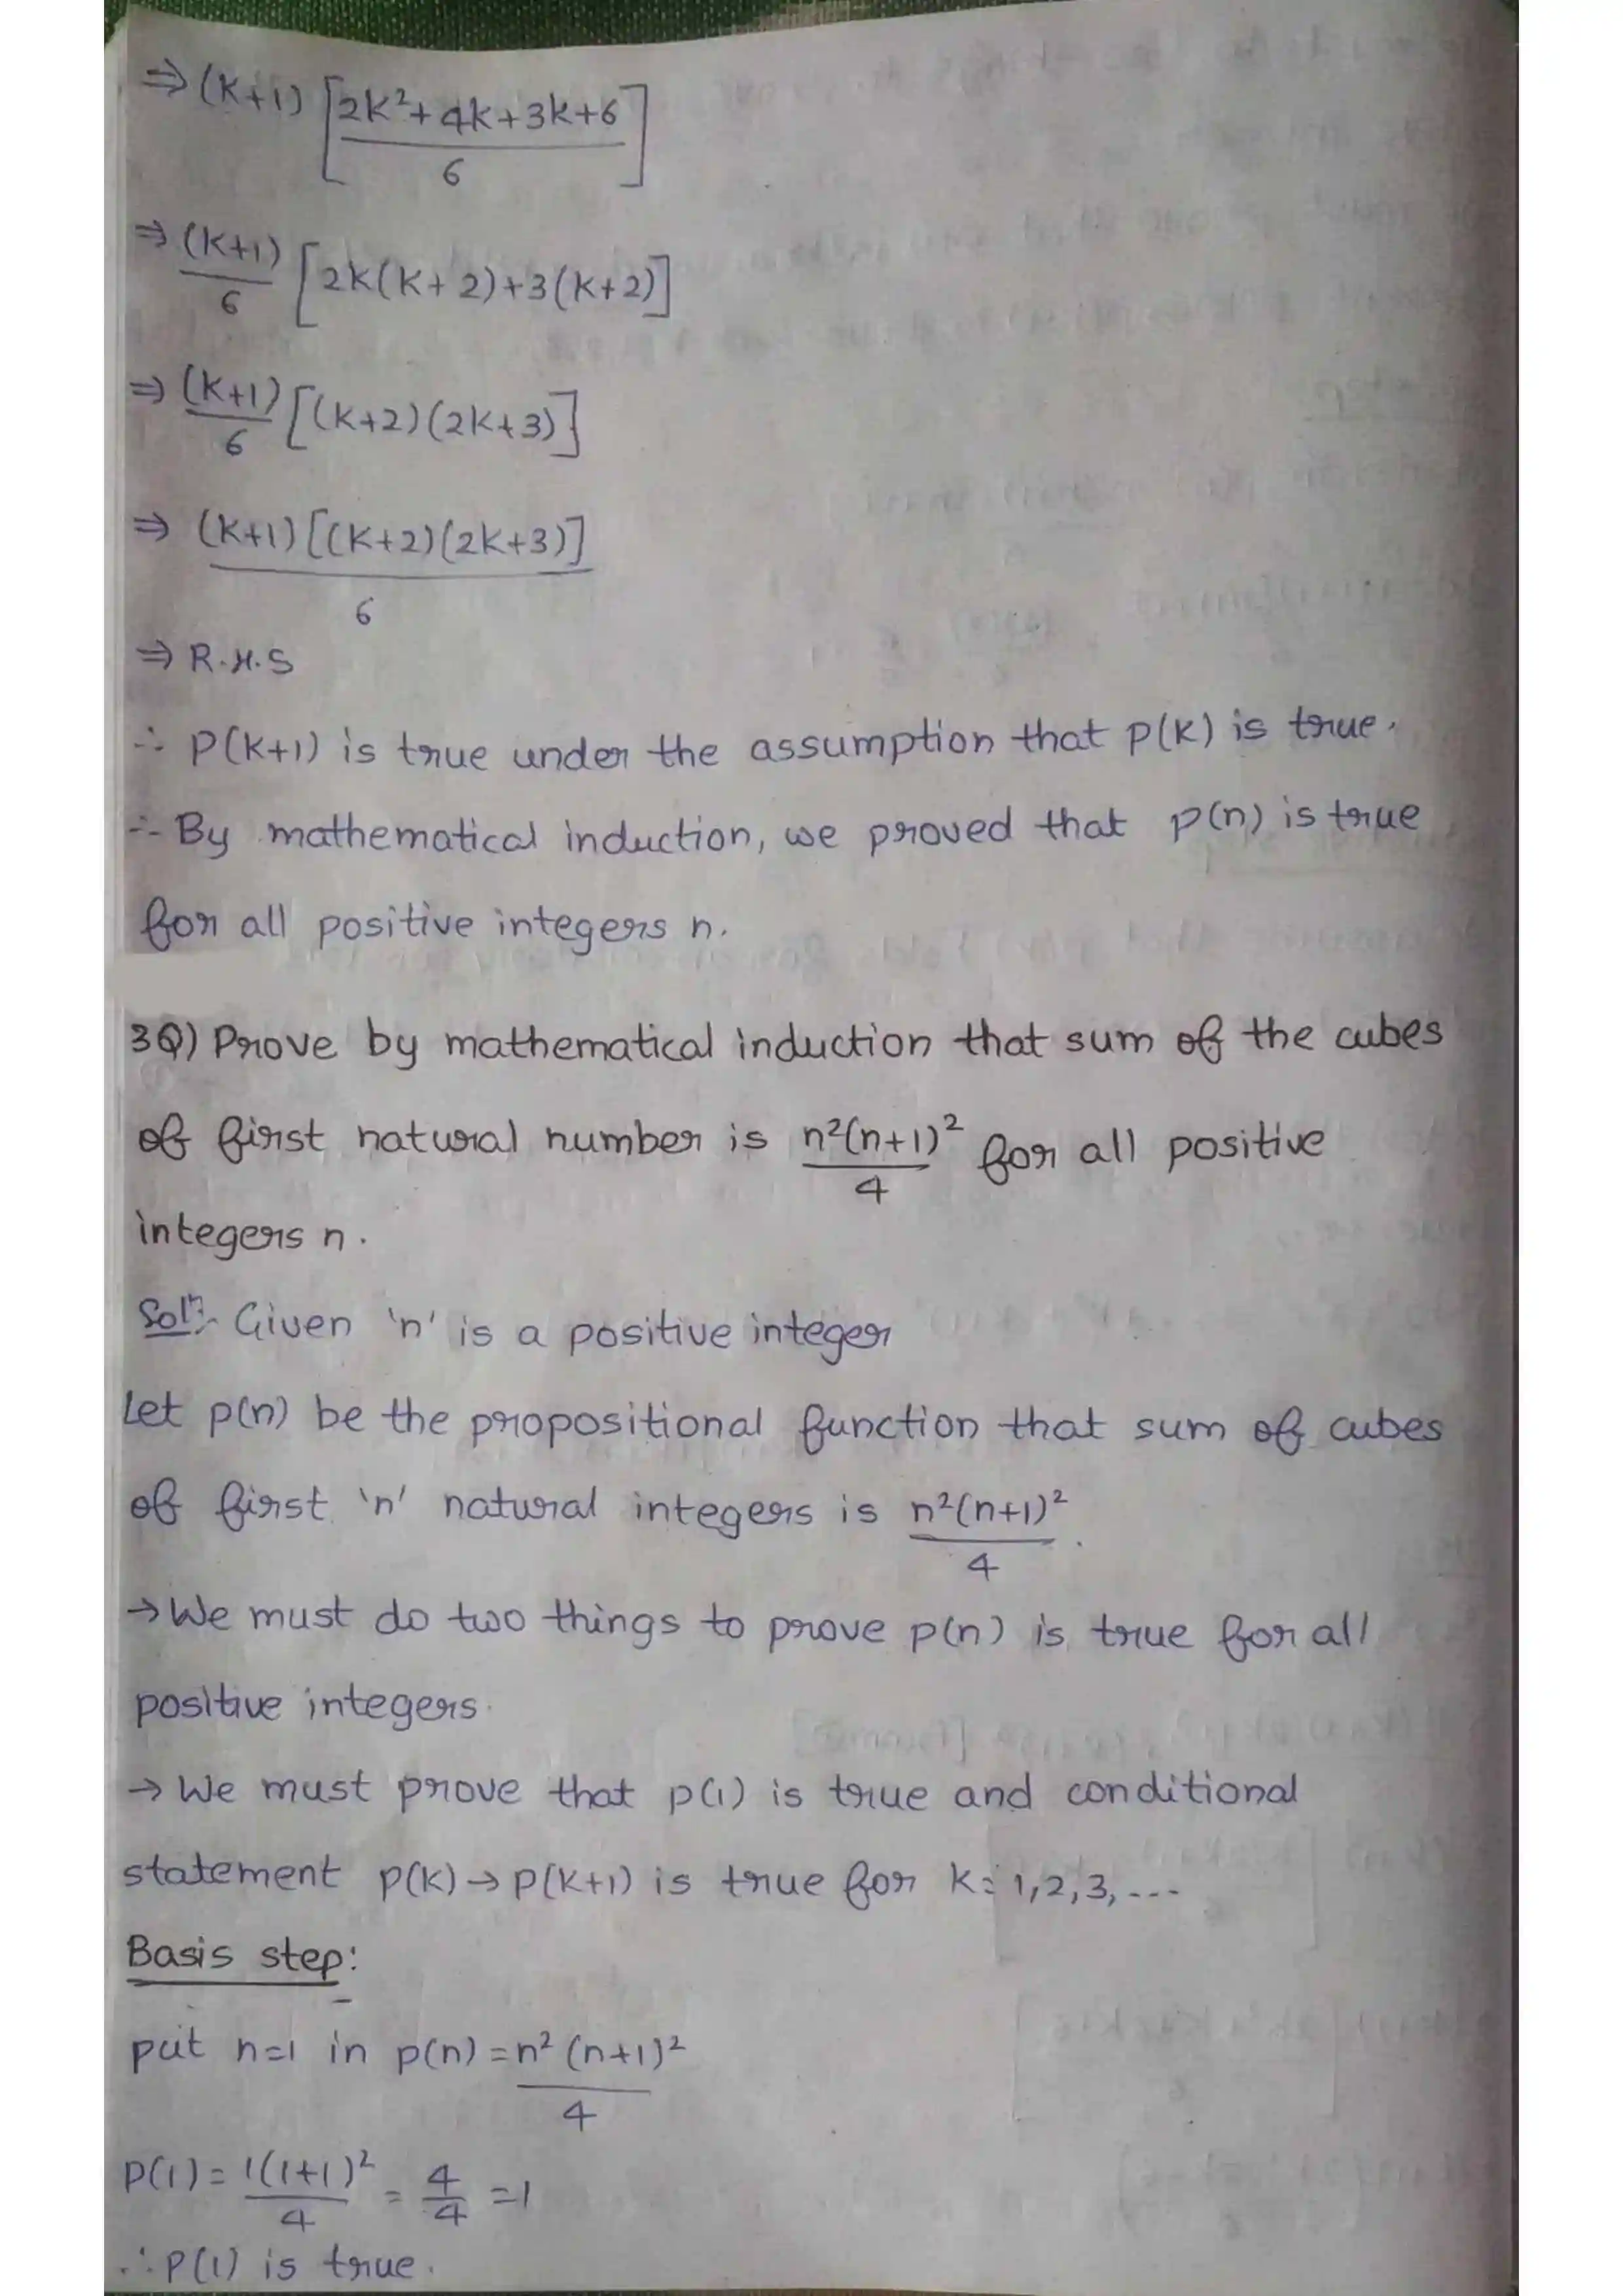 ⇒ (K+1) [2K²+4K+3K+6 / 6]
⇒ (K+1)/6 [2K(K+2)+3(K+2)]
⇒ (K+1)/6 [(K+2)(2K+3)]
⇒ (K+1)[(K+2)(2K+3)] / 6
⇒ R.H.S
∴ P(K+1) is true under the assumption that P(K) is true.
∴ By mathematical induction, we proved that p(n) is true
for all positive integers n.
3Q) Prove by mathematical induction that sum of the cubes
of first natural number is n²(n+1)²/4 for all positive
integers n.
Solⁿ:- Given 'n' is a positive integer
Let p(n) be the propositional function that sum of cubes
of first 'n' natural integers is n²(n+1)²/4.
→ We must do two things to prove p(n) is true for all
positive integers.
→ We must prove that p(1) is true and conditional
statement p(K)→P(K+1) is true for K= 1,2,3,...
Basis step:
put n=1 in p(n) = n²(n+1)²/4
P(1) = 1(1+1)²/4 = 4/4 = 1
∴ P(1) is true.